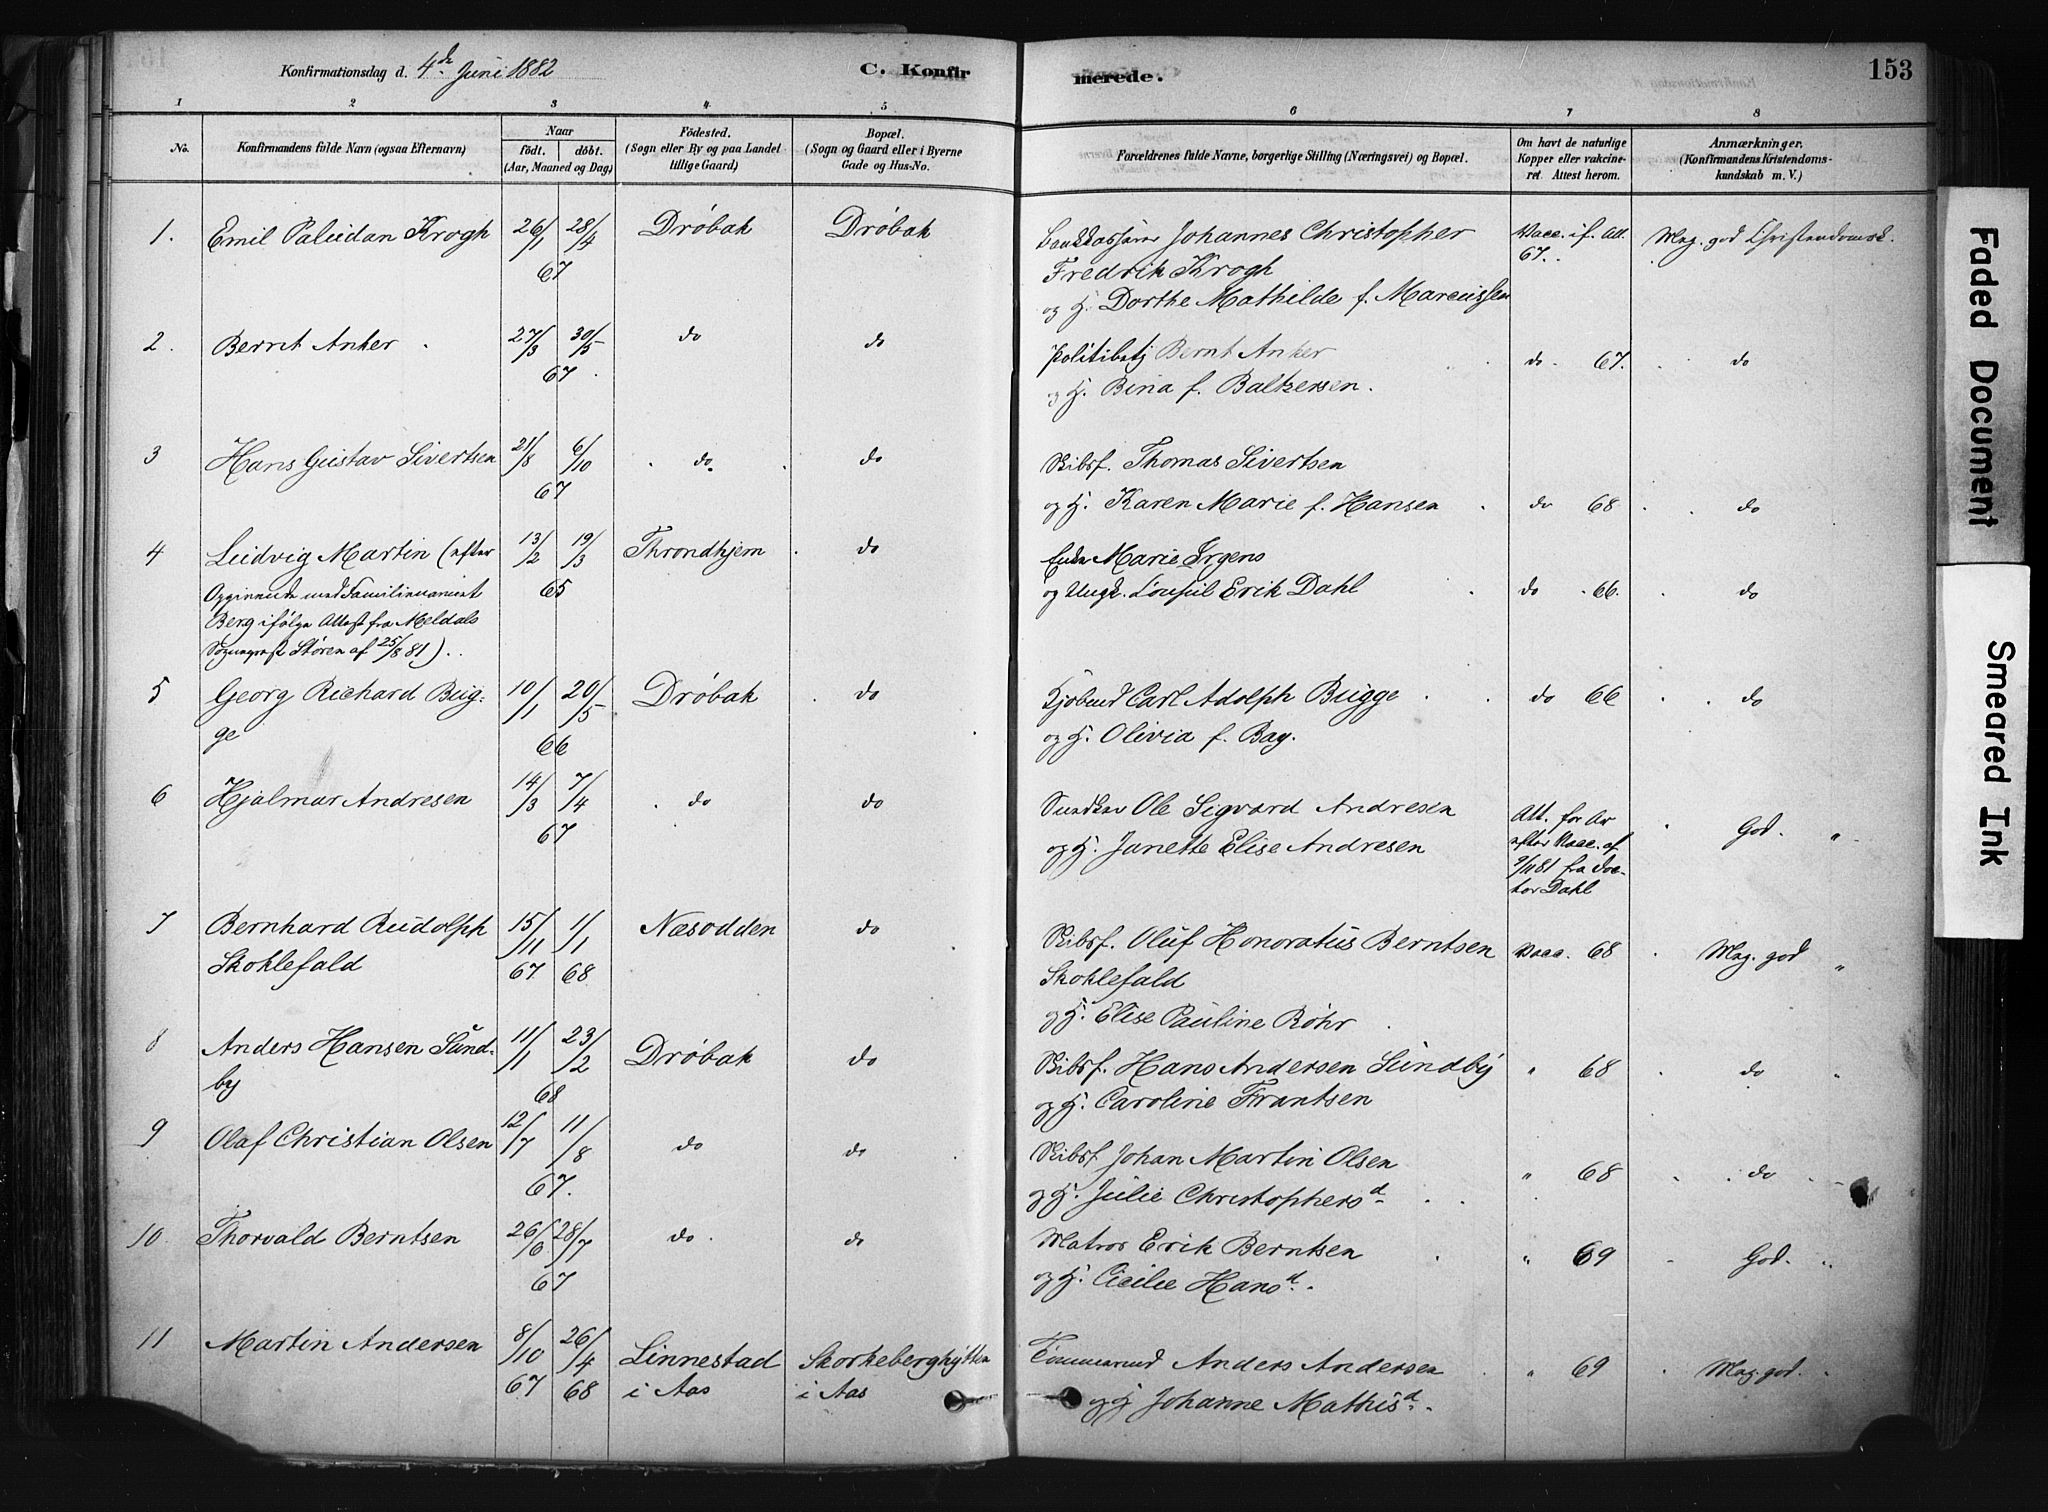 Konfirmationsdag d. 4de Juni 1882
C. Konfirmerede.
153
1 2 3 4 5 6 7 8
No.
Konfirmandens fulde Navn (ogsaa Efternavn)
Naar
födt. döbt.
(Aar, Maaned og Dag)
Födested.
(Sogn eller By og paa Landet
tillige Gaard)
Bopæl.
(Sogn og Gaard eller i Byerne
Gade og Hus-No.
Forældrenes fulde Navne, borgerlige Stilling (Næringsvei) og Bopæl.
Om havt de naturlige
Kopper eller vakcine-
ret. Attest herom.
Anmærkninger.
(Konfirmandens Kristendoms-
kundskab m. V.)
1. Emil Paludan Krogh 26/1 28/4 Drøbak Drøbak Bankkasserer Johannes Christopher Vacc. if. Att. Mag. god Christendomsk.
67 Fredrik Krogh 67.
og H. Dorthe Mathilde f. Marcussen
2. Bernt Anker 27/3 30/5 do do Politibetj Bernt Anker do 67. do
67 og H. Bina f. Baltzersen.
3 Hans Gustav Sivertsen 21/8 6/10 do do Skibsf. Thomas Sivertsen
67 og H. Karen Marie f. Hansen do 68 do
4 Ludvig Martin (efter 13/2 19/3 Throndhjem do Enke Marie Irgens
Opgivende med Familienavnet 65 og Ungk. Consul Erik Dahl do 66. do
Berg ifølge Attest fra Meldals
Sogneprest Støren af 25/8 81).
5 Georg Richard Bug- 10/1 20/5 Drøbak do Kjøbmd Carl Adolph Bugge do 66 do
ge 66 og H. Olivia f. Bay.
6 Hjalmar Andresen 14/3 7/4 do do Ole Sigvard Andresen Att. for Ar God. "
67 og H. Janette Elise Andresen efter Vacc. af
9/11 81 fra Doc-
tor Dahl
7 Bernhard Rudolph 15/11 1/1 Næsodden do Skibsf. Oluf Honoratus Berntsen Vacc. 68 Mag. god "
Skoklefald 67 68 Skoklefald
og H. Elise Pauline Röhr
8 Anders Hansen Sund- 11/1 23/2 Drøbak do Skibsf. Hans Andersen Sundby " 68 do "
by 68 og H. Caroline Frantsen
9 Olaf Christian Olsen 12/7 11/8 do do Skibsf Johan Martin Olsen " 68 do
67. og H. Julie Christophersd
10 Thorvald Berntsen 26/6 28/7 do do Matros Erik Berntsen " 69 God. "
67 og H. Cicilie Hansd.
11 Martin Andersen 8/10 26/4 Linnestad Skorkeberghytten Tømmermd Anders Andersen " 69 Mag. god. "
67 68 i Aas i Aas og H Johanne Mathisd.
Faded Document
Smeared Ink